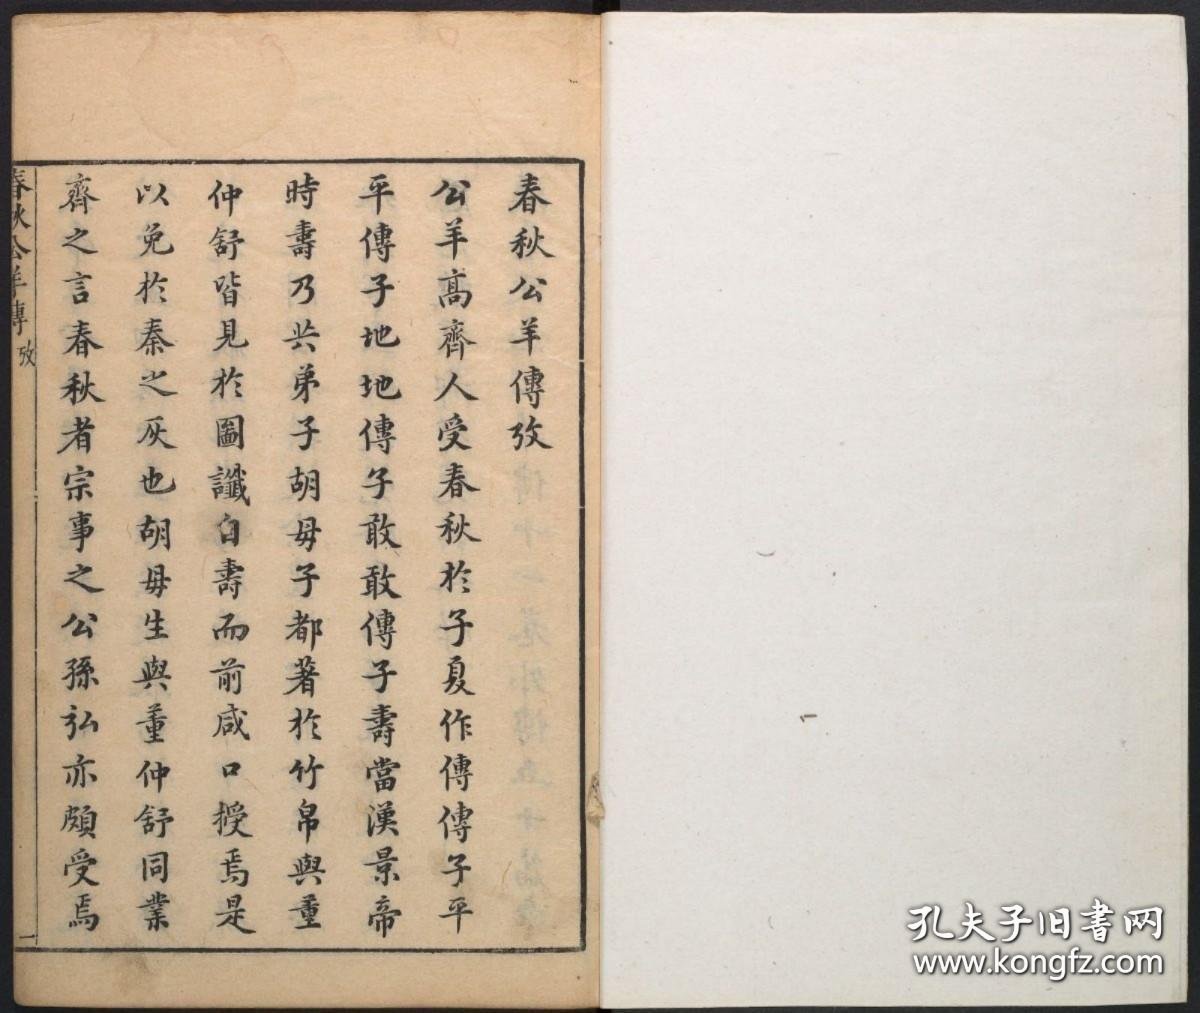 春秋公羊傳攷
公羊高齊人受春秋於子夏作傳傳子平
平傳子地地傳子敢敢傳子壽當漢景帝
時壽乃共弟子胡毋子都著於竹帛與董
仲舒皆見於圖讖自壽而前咸口授焉是
以免於秦之灰也胡毋生與董仲舒同業
齊之言春秋者宗事之公孫弘亦頗受焉
春秋公羊傳攷
一
孔夫子旧书网
www.kongfz.com